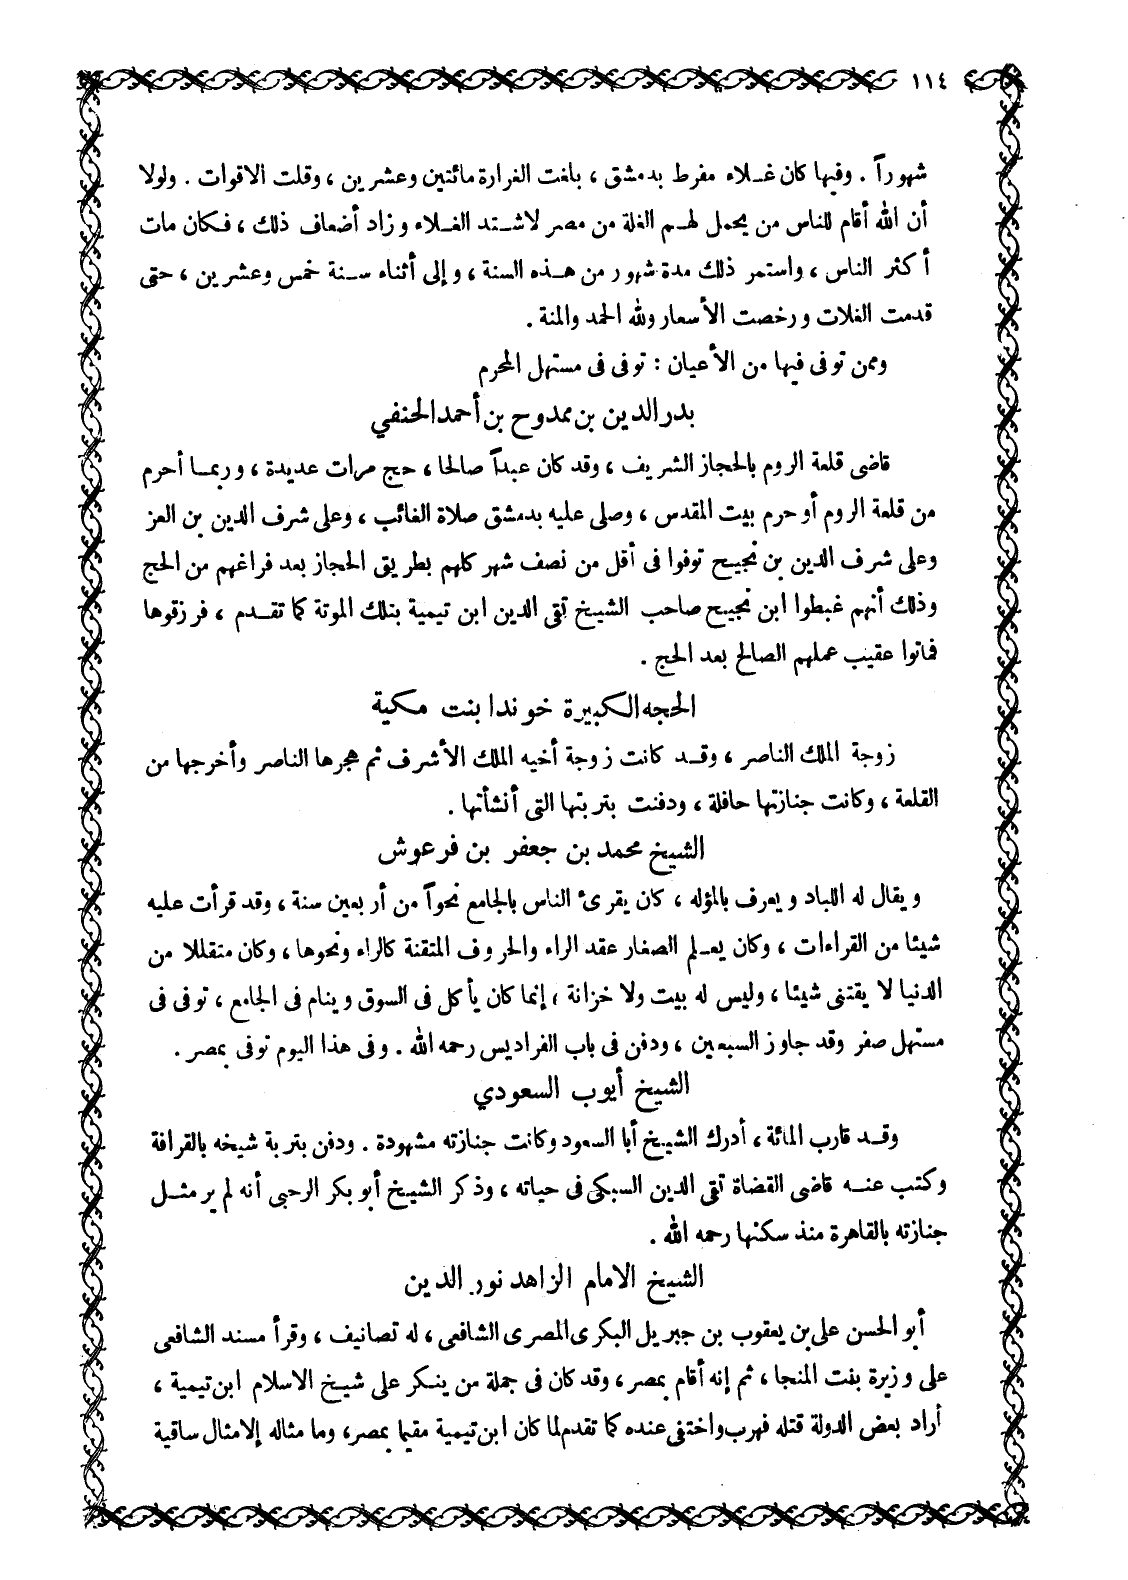 ١١٤
شهوراً . وفيها كان غلاء مفرط بدمشق ، بلغت الغرارة مائتين وعشرين ، وقلت الاقوات . ولولا
أن الله أقام للناس من يحمل لهم الغلة من مصر لاشتد الغلاء وزاد أضعاف ذلك ، فكان مات
أكثر الناس ، واستمر ذلك مدة شهور من هذه السنة ، وإلى أثناء سنة خمس وعشرين ، حتى
قدمت الغلات ورخصت الأسعار ولله الحمد والمنة .
وممن توفى فيها من الأعيان : توفى فى مستهل المحرم
بدر الدين بن ممدوح بن أحمد الحنفي
قاضى قلعة الروم بالحجاز الشريف ، وقد كان عبداً صالحا ، حج مرات عديدة ، وربما أحرم
من قلعة الروم أو حرم بيت المقدس ، وصلى عليه بدمشق صلاة الغائب ، وعلى شرف الدين بن العز
وعلى شرف الدين بن نجيح توفوا فى أقل من نصف شهر كلهم بطريق الحجاز بعد فراغهم من الحج
وذلك أنهم غبطوا ابن نجيح صاحب الشيخ تقى الدين ابن تيمية بتلك الموتة كما تقدم ، فرزقوها
فماتوا عقيب عملهم الصالح بعد الحج .
الحجه الكبيرة خوندا بنت مكية
زوجة الملك الناصر ، وقد كانت زوجة أخيه الملك الأشرف ثم هجرها الناصر وأخرجها من
القلعة ، وكانت جنازتها حافلة ، ودفنت بتربتها التى أنشأتها .
الشيخ محمد بن جعفر بن فرعوش
ويقال له اللباد ويعرف بالمؤله ، كان يقرئ الناس بالجامع نحواً من أربعين سنة ، وقد قرأت عليه
شيئا من القراءات ، وكان يعلم الصغار عقد الراء والحروف المتقنة كالراء ونحوها ، وكان متقللا من
الدنيا لا يقتنى شيئا ، وليس له بيت ولا خزانة ، إنما كان يأكل فى السوق وينام فى الجامع ، توفى فى
مستهل صفر وقد جاوز السبعين ، ودفن فى باب الفراديس رحمه الله . وفى هذا اليوم توفى بمصر .
الشيخ أيوب السعودي
وقد قارب المائة ، أدرك الشيخ أبا السعود وكانت جنازته مشهودة . ودفن بتربة شيخه بالقرافة
وكتب عنه قاضى القضاة تقى الدين السبكى فى حياته ، وذكر الشيخ أبو بكر الرحبى أنه لم ير مثل
جنازته بالقاهرة منذ سكنها رحمه الله .
الشيخ الامام الزاهد نور الدين
أبو الحسن على بن يعقوب بن جبريل البكرى المصرى الشافعى ، له تصانيف ، وقرأ مسند الشافعى
على وزيرة بنت المنجا ، ثم إنه أقام بمصر ، وقد كان فى جملة من ينكر على شيخ الاسلام ابن تيمية ،
أراد بعض الدولة قتله فهرب واختفى عنده كما تقدم لما كان ابن تيمية مقيما بمصر ، وما مثاله إلا مثال ساقية